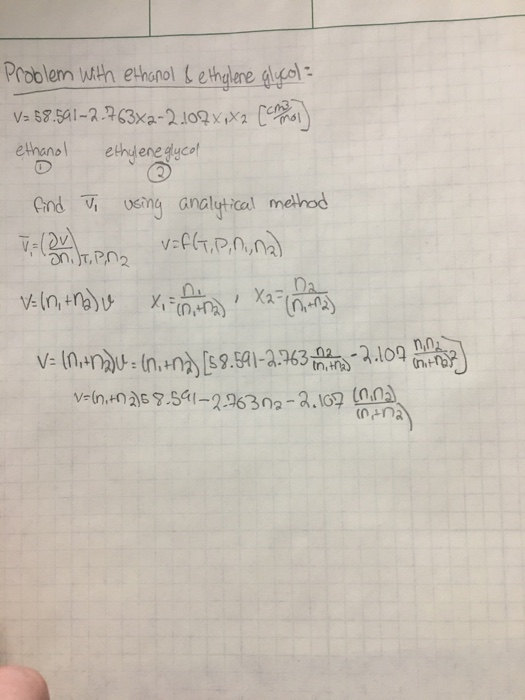 Problem with ethanol & ethylene glycol:
v = 58.591 - 2.763x₂ - 2.107x₁x₂ [cm³/mol]
ethanol ethylene glycol
① ②
find V̄₁ using analytical method
V̄₁ = (∂V/∂n₁)T,P,n₂ V = f(T,P,n₁,n₂)
V = (n₁+n₂)v x₁ = n₁/(n₁+n₂), x₂ = n₂/(n₁+n₂)
V = (n₁+n₂)v = (n₁+n₂)[58.591 - 2.763 n₂/(n₁+n₂) - 2.107 n₁n₂/(n₁+n₂)²]
V = (n₁+n₂)58.591 - 2.763n₂ - 2.107 (n₁n₂)/(n₁+n₂)